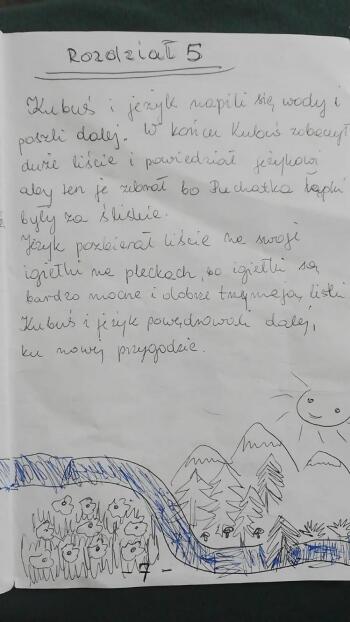 Rozdział 5
Kubuś i jeżyk napili się wody i
poszli dalej. W końcu Kubuś zobaczył
duże liście i powiedział jeżykowi
aby ten je zebrał bo Puchatka łapki
były za śliskie.
Jeżyk pozbierał liście na swoje
igiełki na pleckach, bo igiełki są
bardzo mocne i dobrze trzymają listki
Kubuś i jeżyk powędrowali dalej,
ku nowej przygodzie.
- 7 -